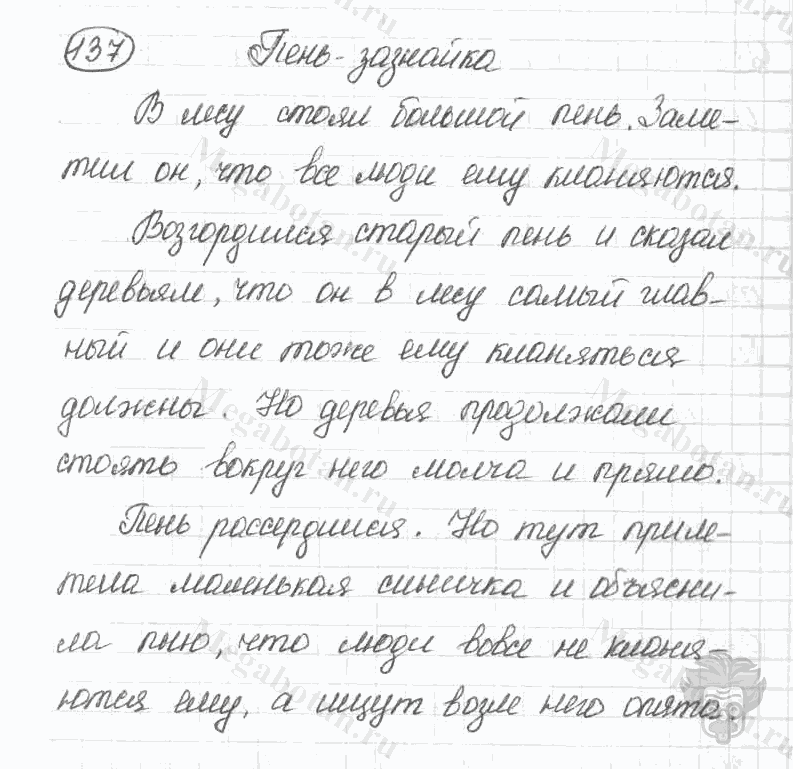 137 Пень-зазнайка
В лесу стоял большой пень. Заме-
тил он, что все люди ему кланяются.
Возгордился старый пень и сказал
деревьям, что он в лесу самый глав-
ный и они тоже ему кланяться
должны. Но деревья продолжали
стоять вокруг него молча и прямо.
Пень рассердился. Но тут приле-
тела маленькая синичка и объясни-
ла пню, что люди вовсе не кланя-
ются ему, а ищут возле него опята.
Megabotan.ru